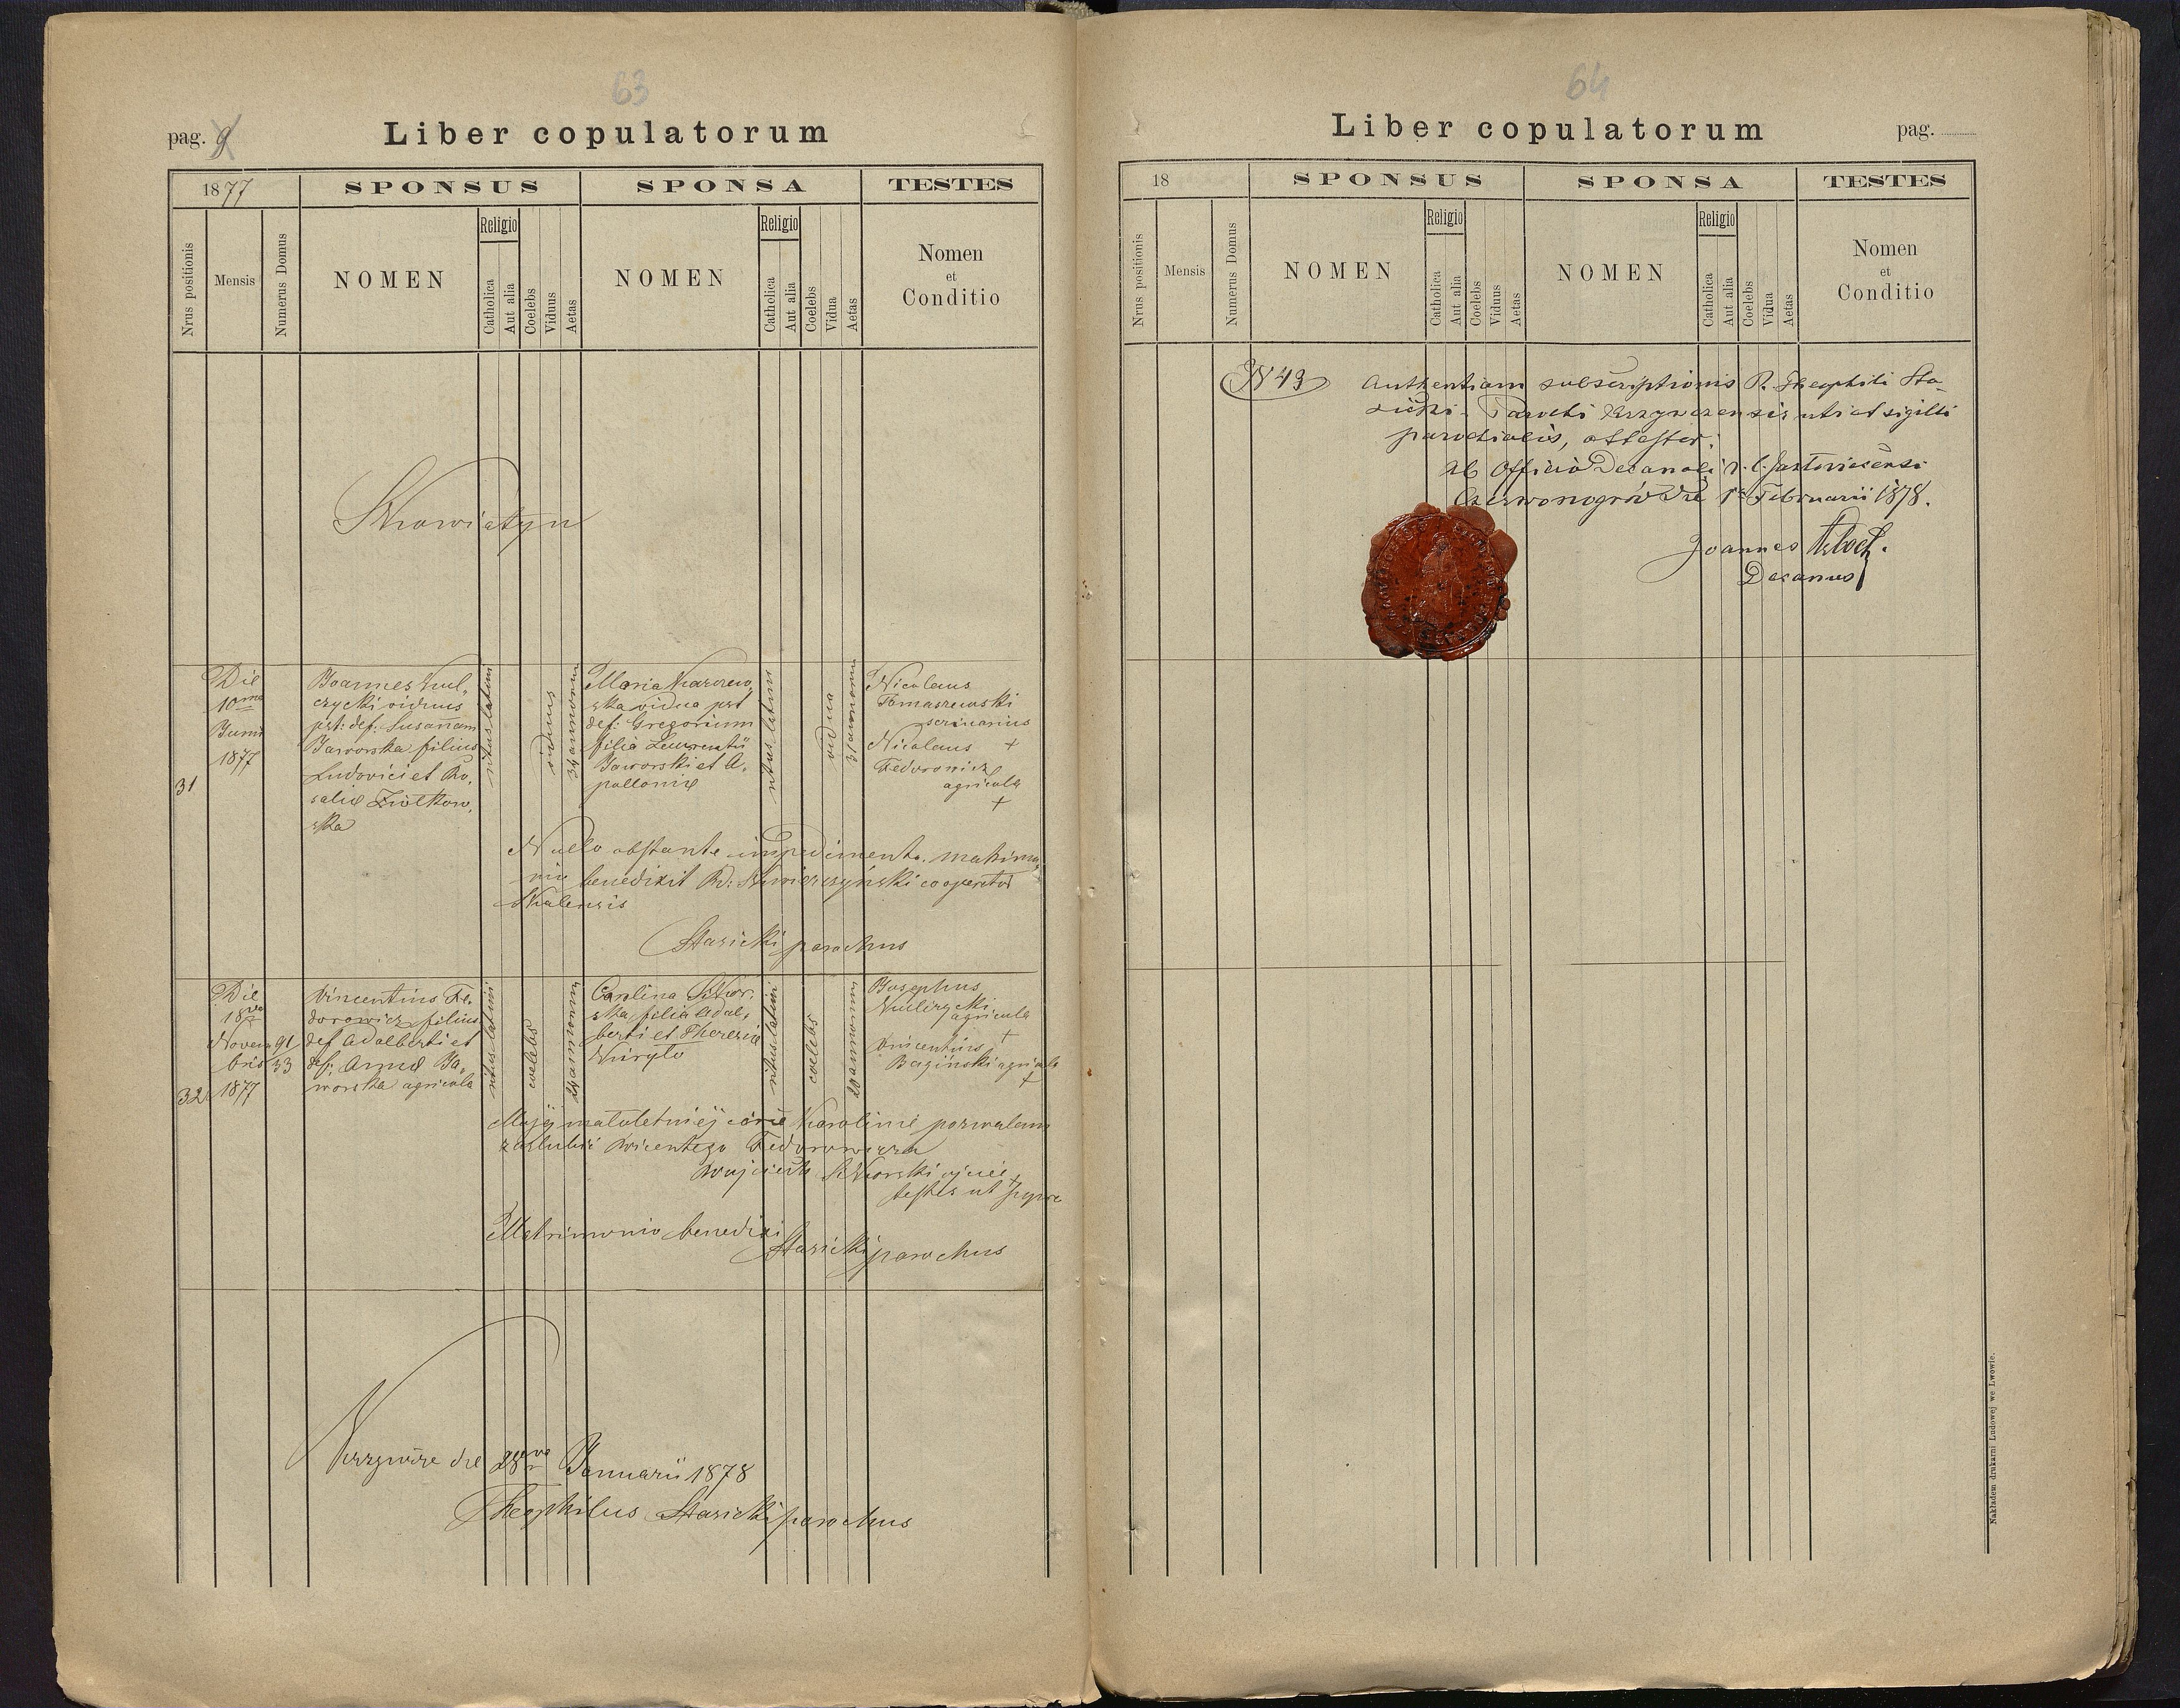 63
pag. 9
Liber copulatorum
1877
SPONSUS
SPONSA
TESTES
Nrus positionis
Mensis
Numerus Domus
NOMEN
Religio
Catholica
Aut alia
Coelebs
Viduus
Aetas
NOMEN
Religio
Catholica
Aut alia
Coelebs
Vidua
Aetas
Nomen
et
Conditio
Skowiatyn
31
Die
10ma
Junii
1877
Joannes Kul,
czycki viduus
pst: def: Susannam
Jaworska filius
Ludovici et Ro,
salie Ziółkow,
ska
ritus latini
viduus
34 annorum
Maria Karczew,
ska vidua pst
def: Gregorium
filia Laurentii
Jaworski et A,
pollonie
ritus latini
vidua
31 annorum
Nicolaus
Tomaszewski
Nicolaus +
Fedorowicz
agricola
+
Nullo obstante impedimento, matrimo,
nio benedixit Rd: cooperator
Skalensis
Stasicki parochus
32
Die
18va
Novem
bris
1877
91
33
Vincentius Fe,
dorowicz filius
def Adalberti et
def: Anne Ja,
worska agricola
ritus latini
coelebs
24 annorum
Carolina Sikor,
ska, filia Adal,
berti et Theresie
Kuryło
ritus latini
coelebs
20 annorum
Josephus
Kulczycki
agricola
+
Vincentius
Bagiński agricola
+
Mojej małoletniej córce Karolinie pozwalam
zaślubić Wincentego Fedorowicza
Wojciech Sikorski ojciec +
testes ut supra
Matrimonio benedixi
Stasicki parochus
Krzywcze die 28va Januarii 1878
Theophilus Stasicki parochus
64
Liber copulatorum
pag.
18
SPONSUS
SPONSA
TESTES
Nrus positionis
Mensis
Numerus Domus
NOMEN
Religio
Catholica
Aut alia
Coelebs
Viduus
Aetas
NOMEN
Religio
Catholica
Aut alia
Coelebs
Vidua
Aetas
Nomen
et
Conditio
N 43
Authentiam subscriptionis R. Theophili Sta-
sicki Parochi Krzywczensis uti et sigilli
parochialis, attestor.
Ab Officio Decanali r. l. Jazloviecensi
Czerwonogród die 1a Februarii 1878.
Joannes
Decanus
Nakładem drukarni Ludowej we Lwowie.